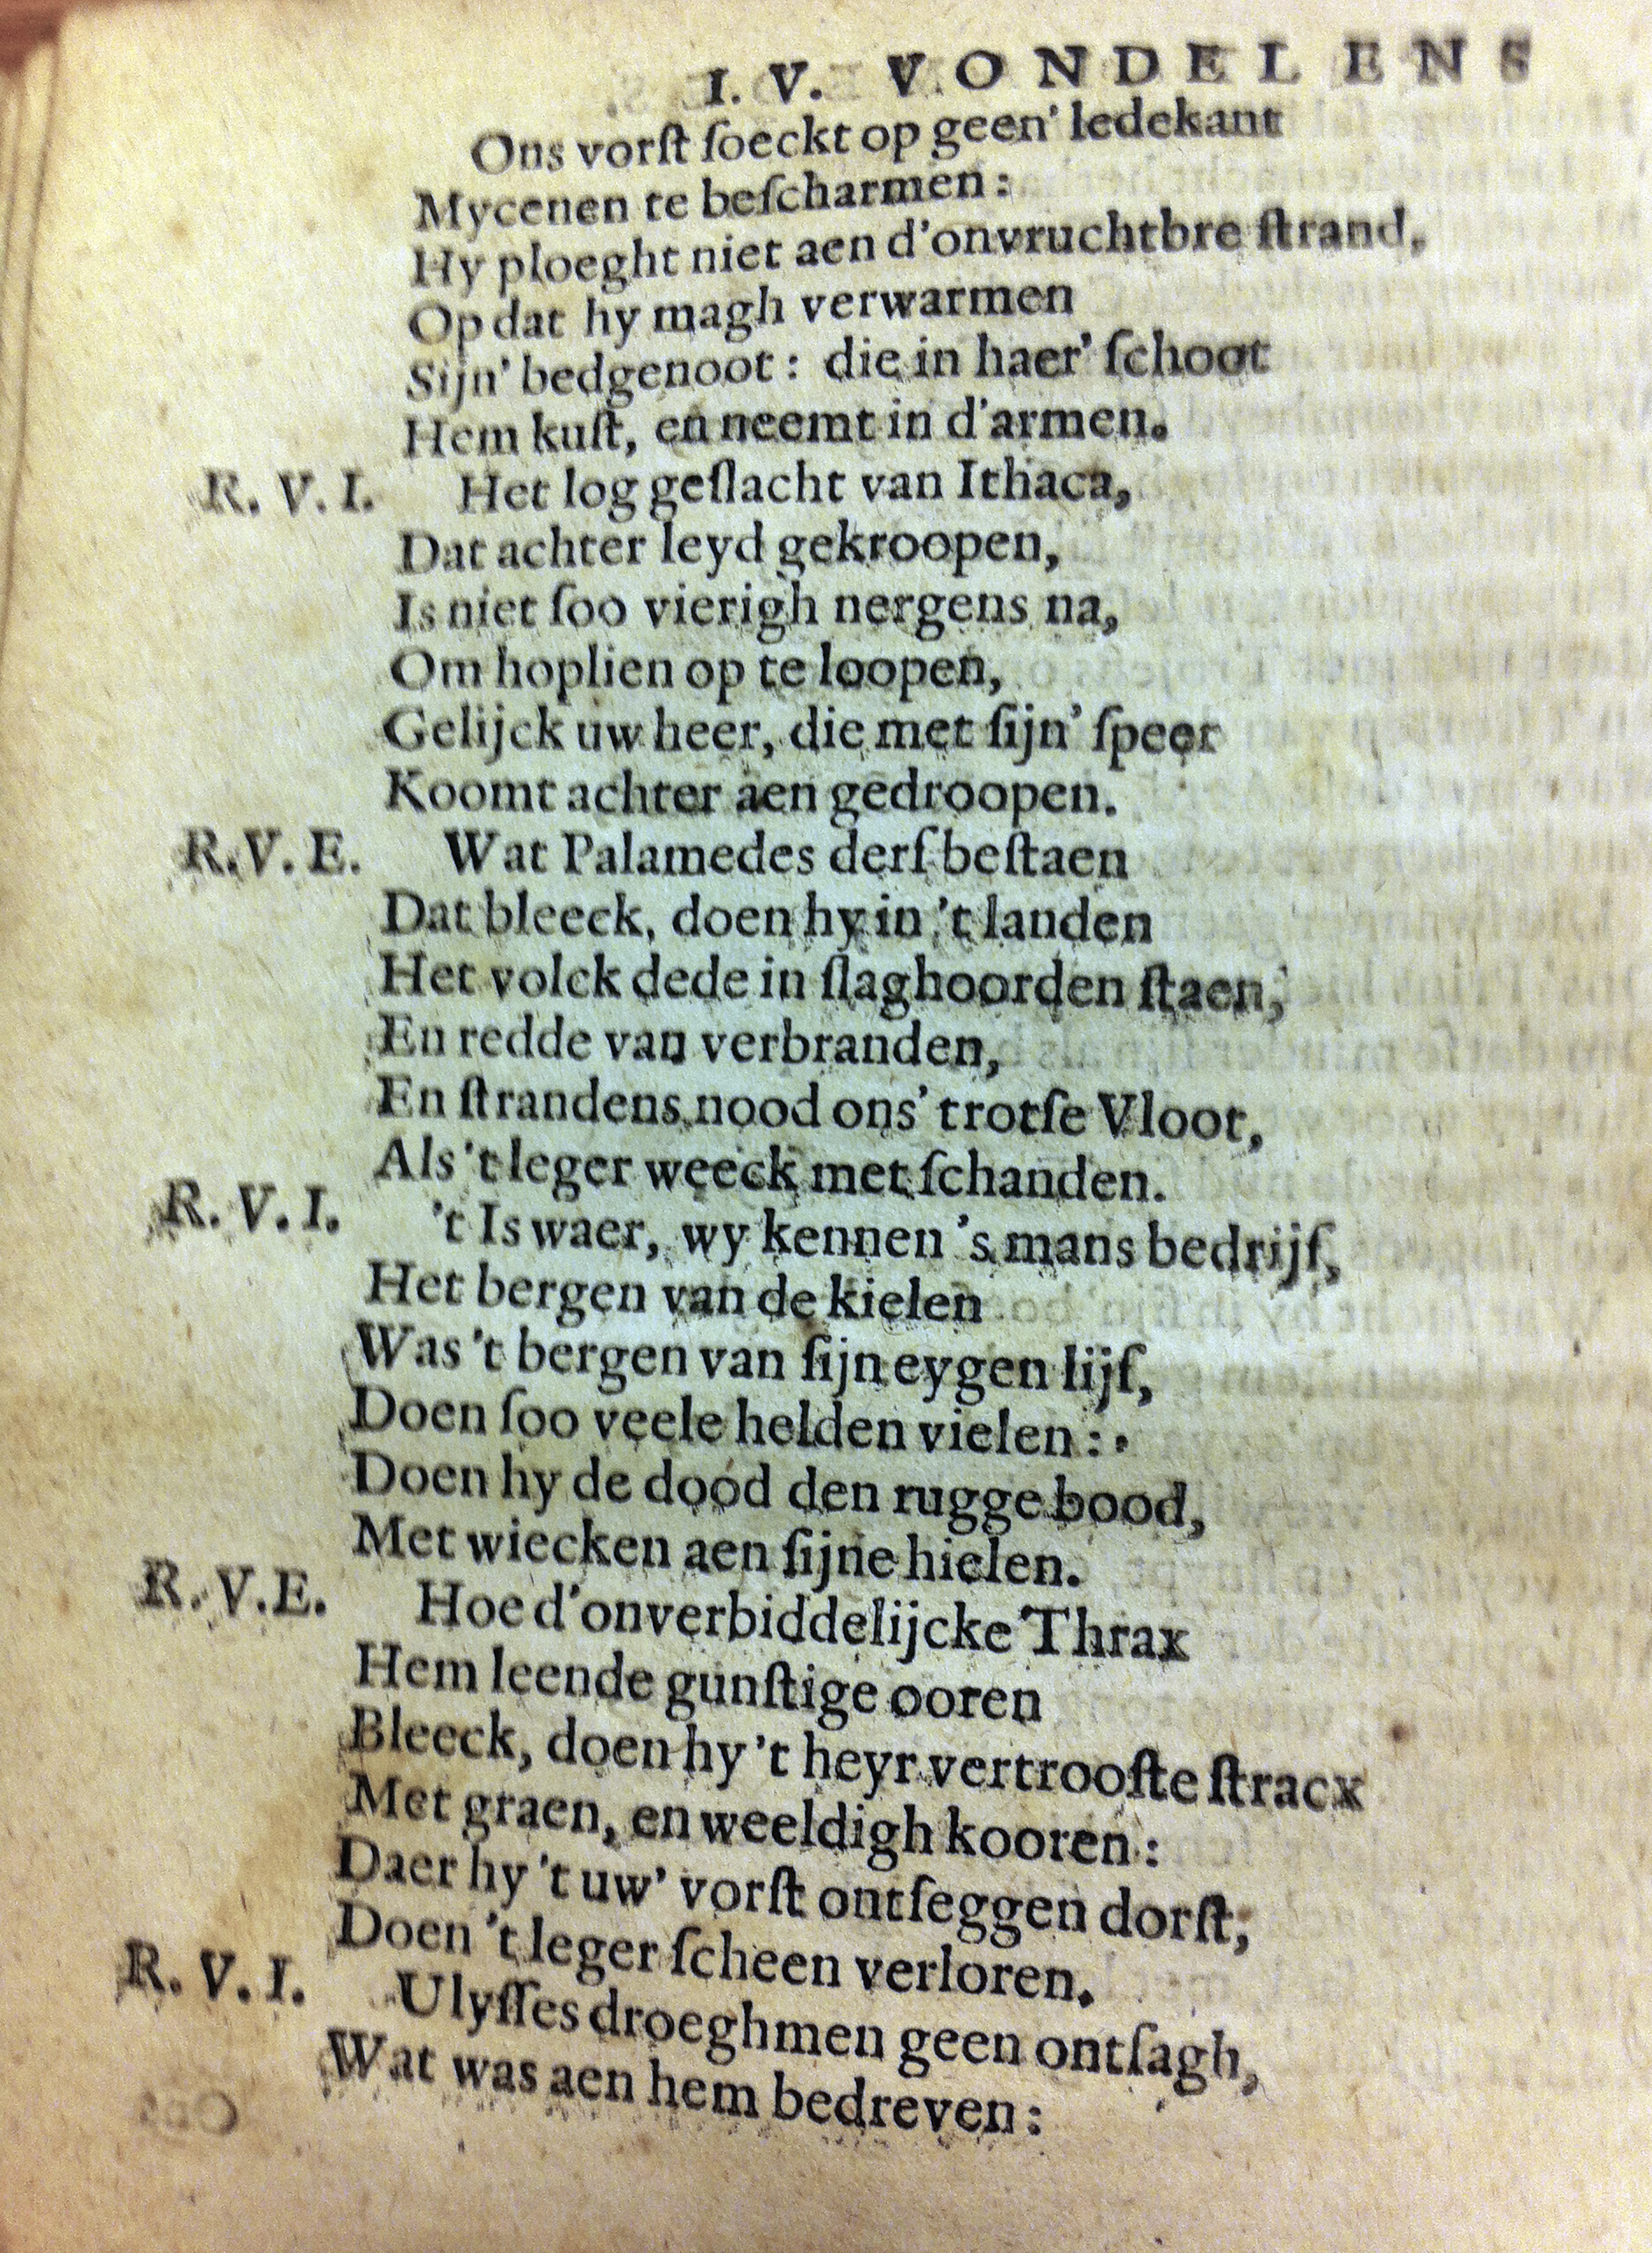 I. V. VONDELENS
Ons vorſt ſoeckt op geen' ledekant
Mycenen te beſcharmen:
Hy ploeght niet aen d'onvruchtbre ſtrand,
Op dat hy magh verwarmen
Sijn' bedgenoot: die in haer' ſchoot
Hem kuſt, en neemt in d'armen.
R. V. I. Het log geſlacht van Ithaca,
Dat achter leyd gekroopen,
Is niet ſoo vierigh nergens na,
Om hoplien op te loopen,
Gelijck uw heer, die met ſijn' ſpeer
Koomt achter aen gedroopen.
R. V. E. Wat Palamedes derf beſtaen
Dat bleeck, doen hy in 't landen
Het volck dede in ſlaghoorden ſtaen,
En redde van verbranden,
En ſtrandens nood ons' trotſe Vloot,
Als 't leger weeck met ſchanden.
R. V. I. 't Is waer, wy kennen 's mans bedrijf,
Het bergen van de kielen
Was 't bergen van ſijn eygen lijf,
Doen ſoo veele helden vielen:
Doen hy de dood den rugge bood,
Met wiecken aen ſijne hielen.
R. V. E. Hoe d'onverbiddelijcke Thrax
Hem leende gunſtige ooren
Bleeck, doen hy 't heyr vertrooſte ſtracx
Met graen, en weeldigh kooren:
Daer hy 't uw' vorſt ontſeggen dorſt,
Doen 't leger ſcheen verloren.
R. V. I. Ulyſſes droeghmen geen ontſagh,
Wat was aen hem bedreven: